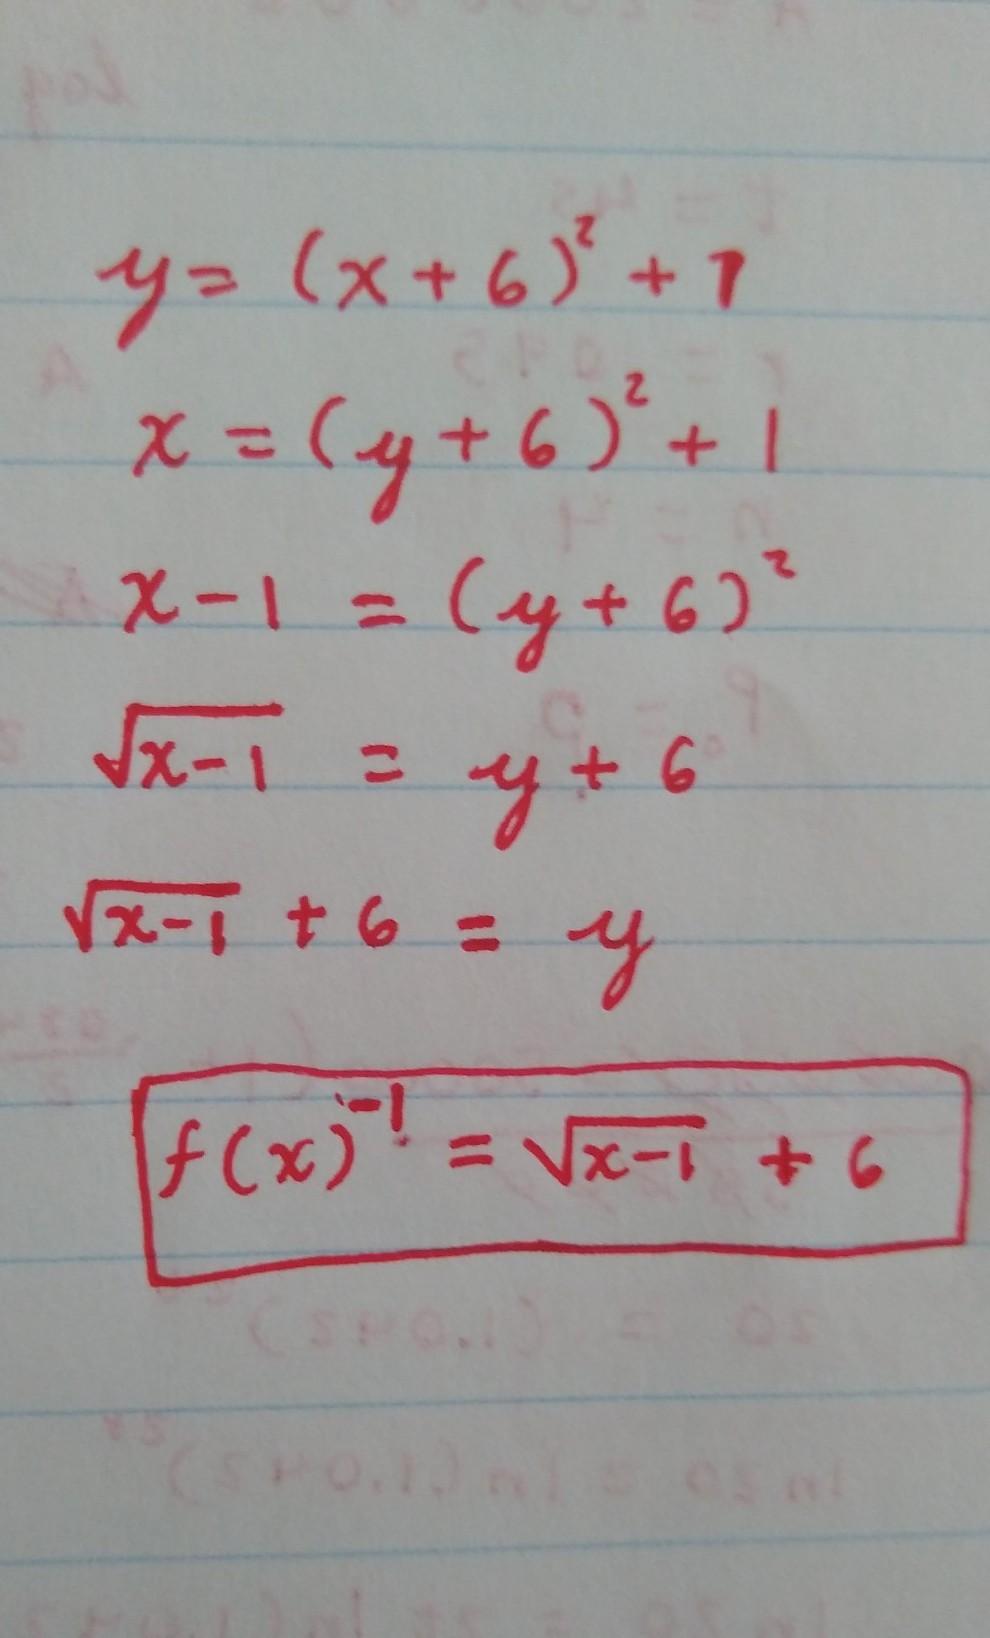 y = (x + 6)² + 1
x = (y + 6)² + 1
x - 1 = (y + 6)²
√x-1 = y + 6
√x-1 + 6 = y
f(x)⁻¹ = √x-1 + 6